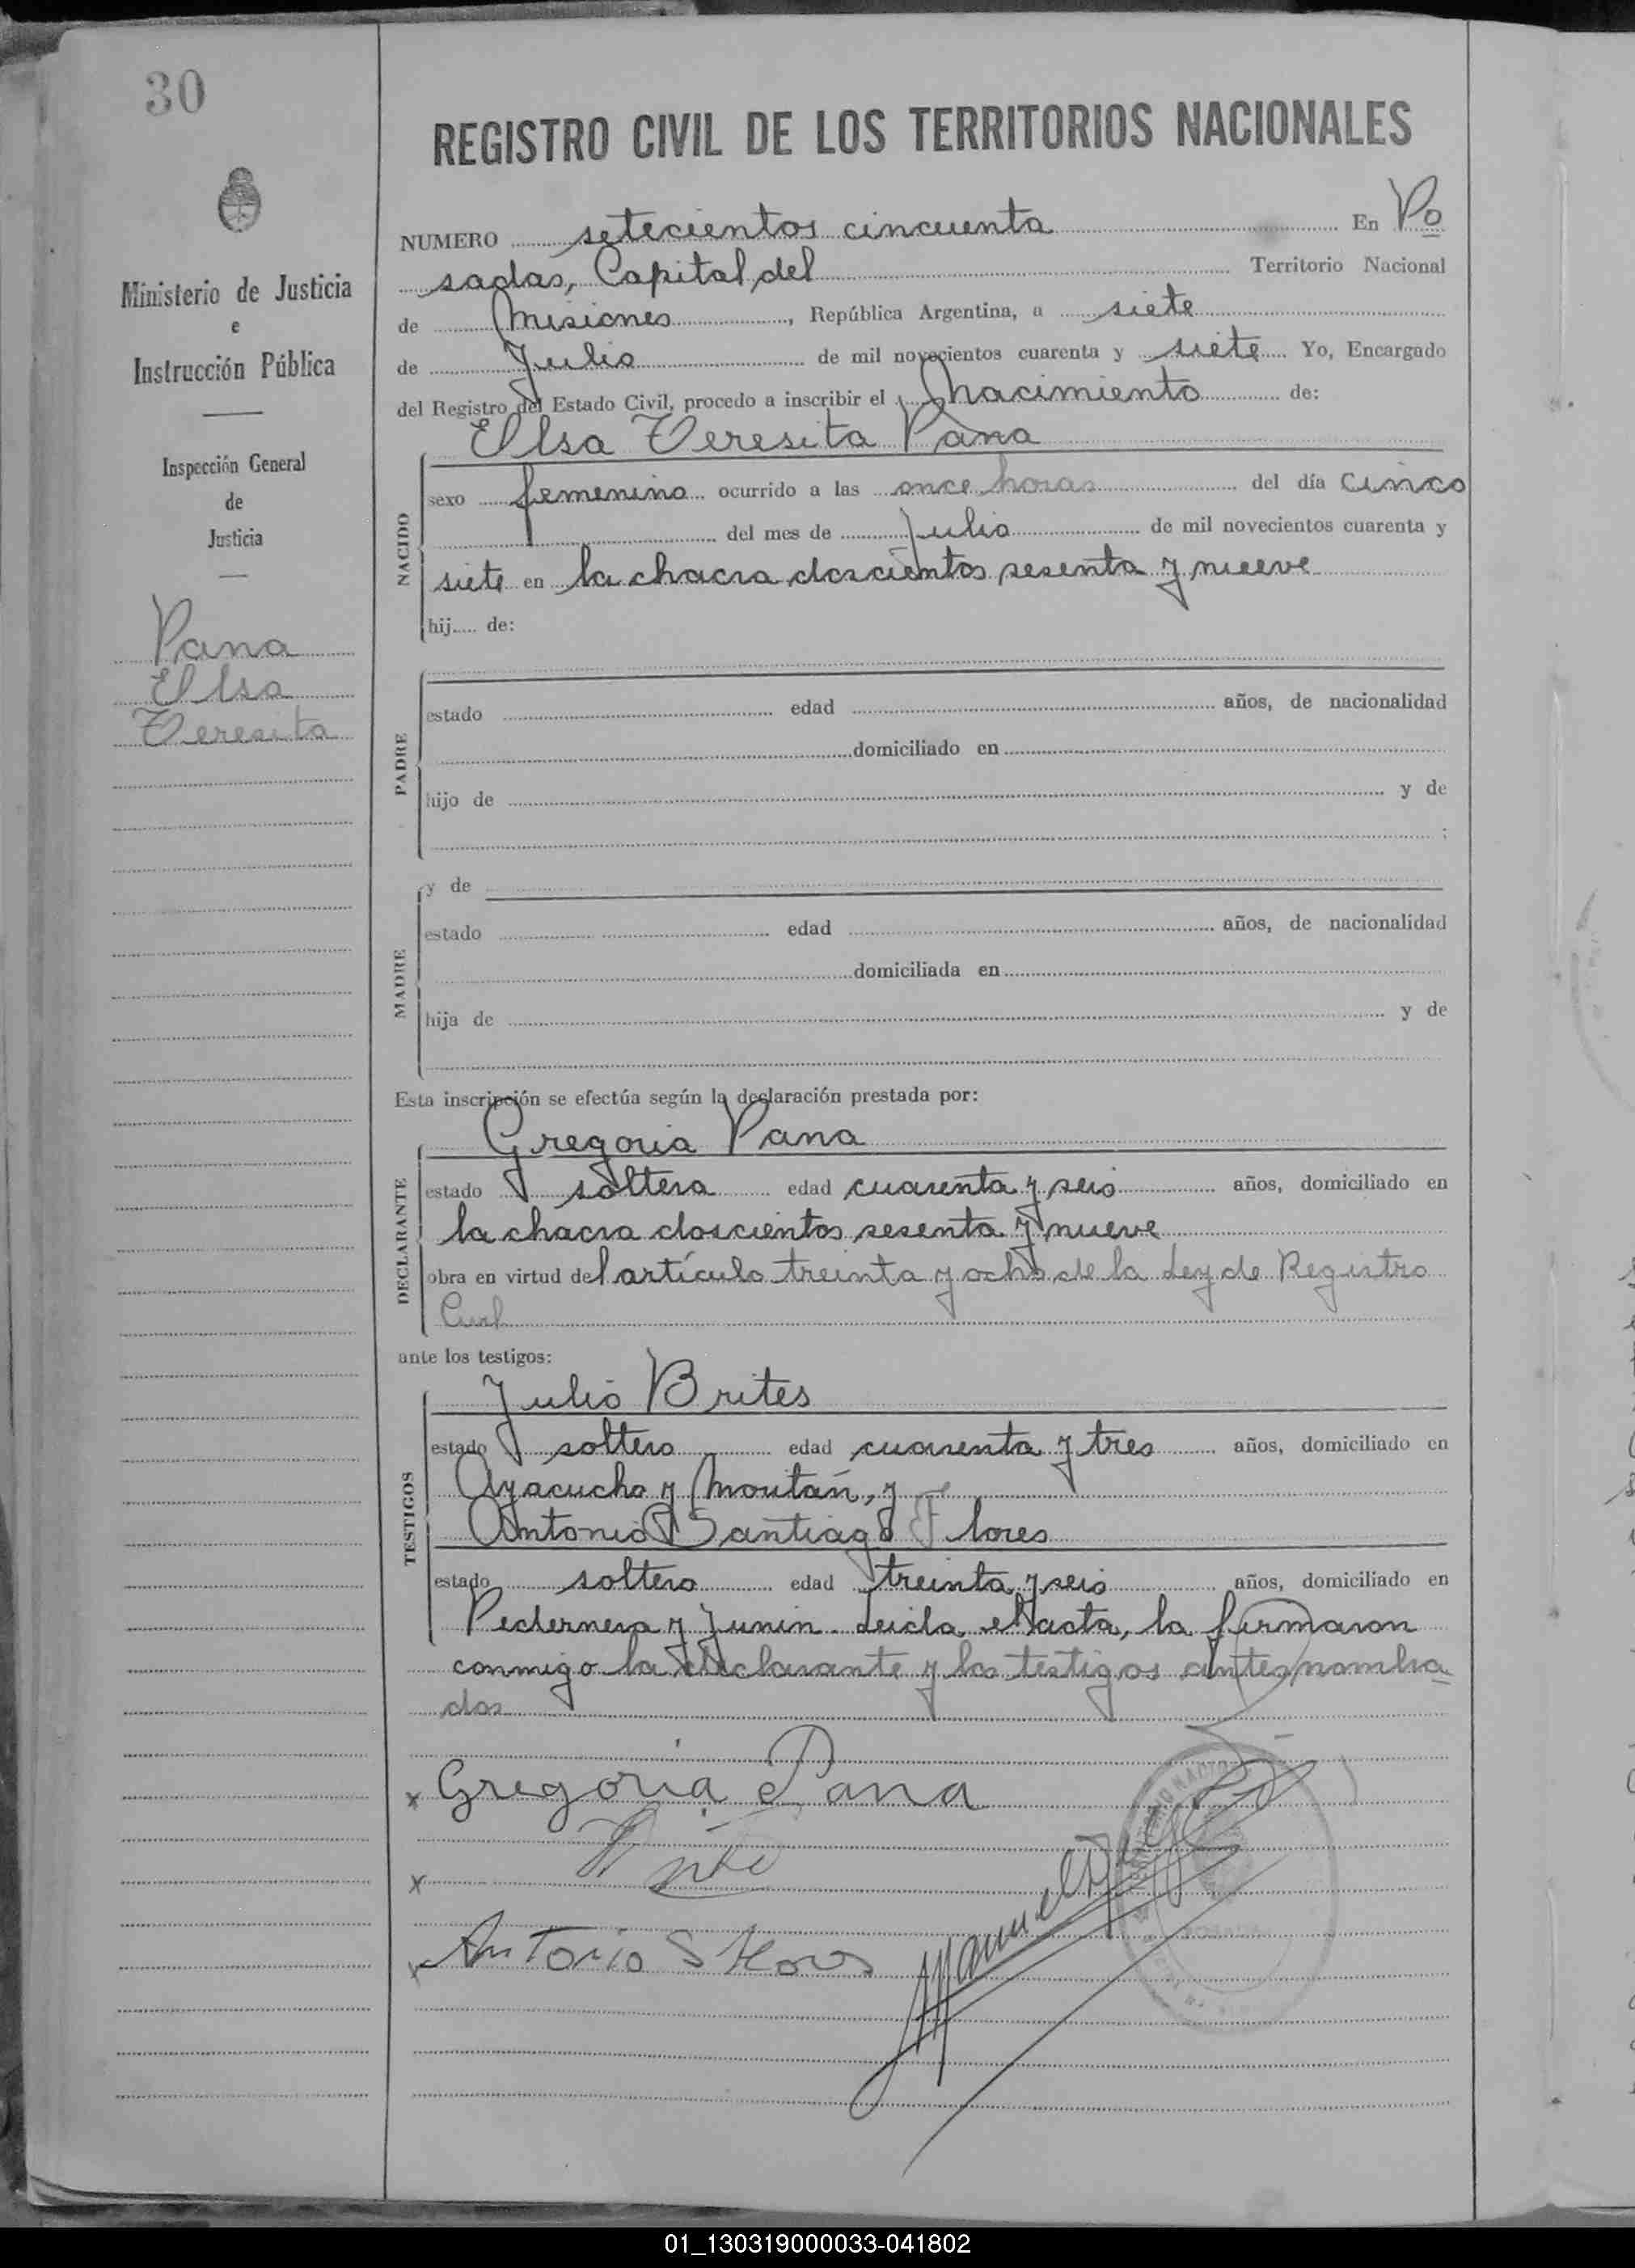 30
REGISTRO CIVIL DE LOS TERRITORIOS NACIONALES
Ministerio de Justicia
e
Instrucción Pública
Inspección General
de
Justicia
Pana
Elsa
Teresita
NUMERO setecientos cincuenta En Po
sadas, Capital del Territorio Nacional
de Misiones, República Argentina, a siete
de Julio de mil novecientos cuarenta y siete Yo, Encargado
del Registro del Estado Civil, procedo a inscribir el Nacimiento de:
Elsa Teresita Pana
NACIDO
sexo femenino ocurrido a las once horas del día cinco
del mes de Julio de mil novecientos cuarenta y
siete en la chacra doscientos sesenta y nueve
hij..... de:
PADRE
estado edad años, de nacionalidad
domiciliado en
hijo de y de
;
MADRE
y de
estado edad años, de nacionalidad
domiciliada en
hija de y de
Esta inscripción se efectúa según la declaración prestada por:
Gregoria Pana
DECLARANTE
estado soltera edad cuarenta y seis años, domiciliado en
la chacra doscientos sesenta y nueve
obra en virtud del artículo treinta y ocho de la Ley de Registro
Civil
ante los testigos:
Julio Brites
TESTIGOS
estado soltero edad cuarenta y tres años, domiciliado en
Ayacucho y Moután, y
Antonio Santiago Flores
estado soltero edad treinta y seis años, domiciliado en
Pedernera y Junin. Leida el acta, la firmaron
conmigo la declarante y los testigos antes nombra
dos
x Gregoria Pana
x
x Antonio S Flores
Manuel
01_130319000033-041802